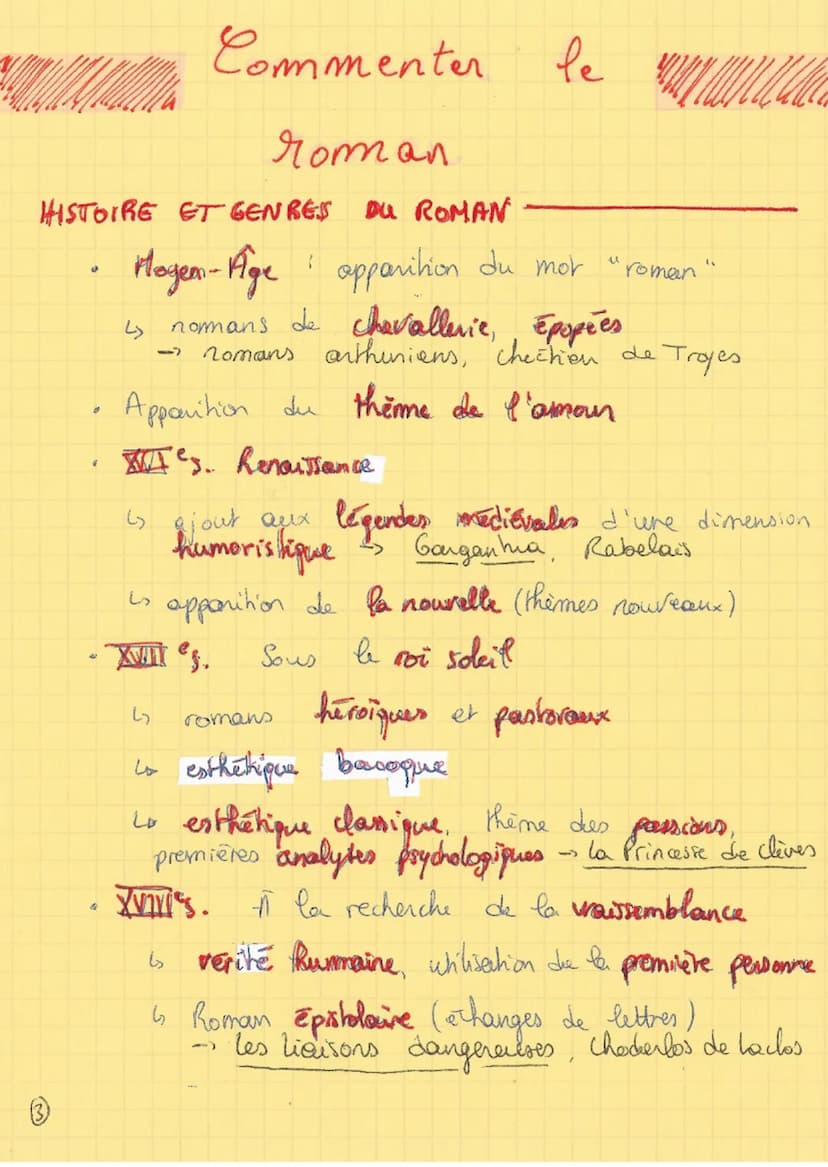 Commenter le
roman
HISTOIRE ET GENRES DU ROMAN
• Moyen-Âge : apparition du mot "roman"
↳ romans de chevallerie, épopées
→ romans arthuriens, Chrétien de Troyes
• Apparition du thème de l'amour
• XVIe s. Renaissance
↳ ajout aux légendes médiévales d'une dimension
humoristique → Gargantua, Rabelais
↳ apparition de la nouvelle (thèmes nouveaux)
• XVII e s. Sous le roi soleil
↳ romans héroïques et pastoraux
↳ esthétique baroque
↳ esthétique classique, thème des passions,
premières analytes psychologiques → La Princesse de Clèves
• XVIIIe s. À la recherche de la vraissemblance
↳ vérité humaine, utilisation de la première personne
↳ Roman épistolaire (échanges de lettres)
→ Les liaisons dangereuses, Choderlos de Laclos
3